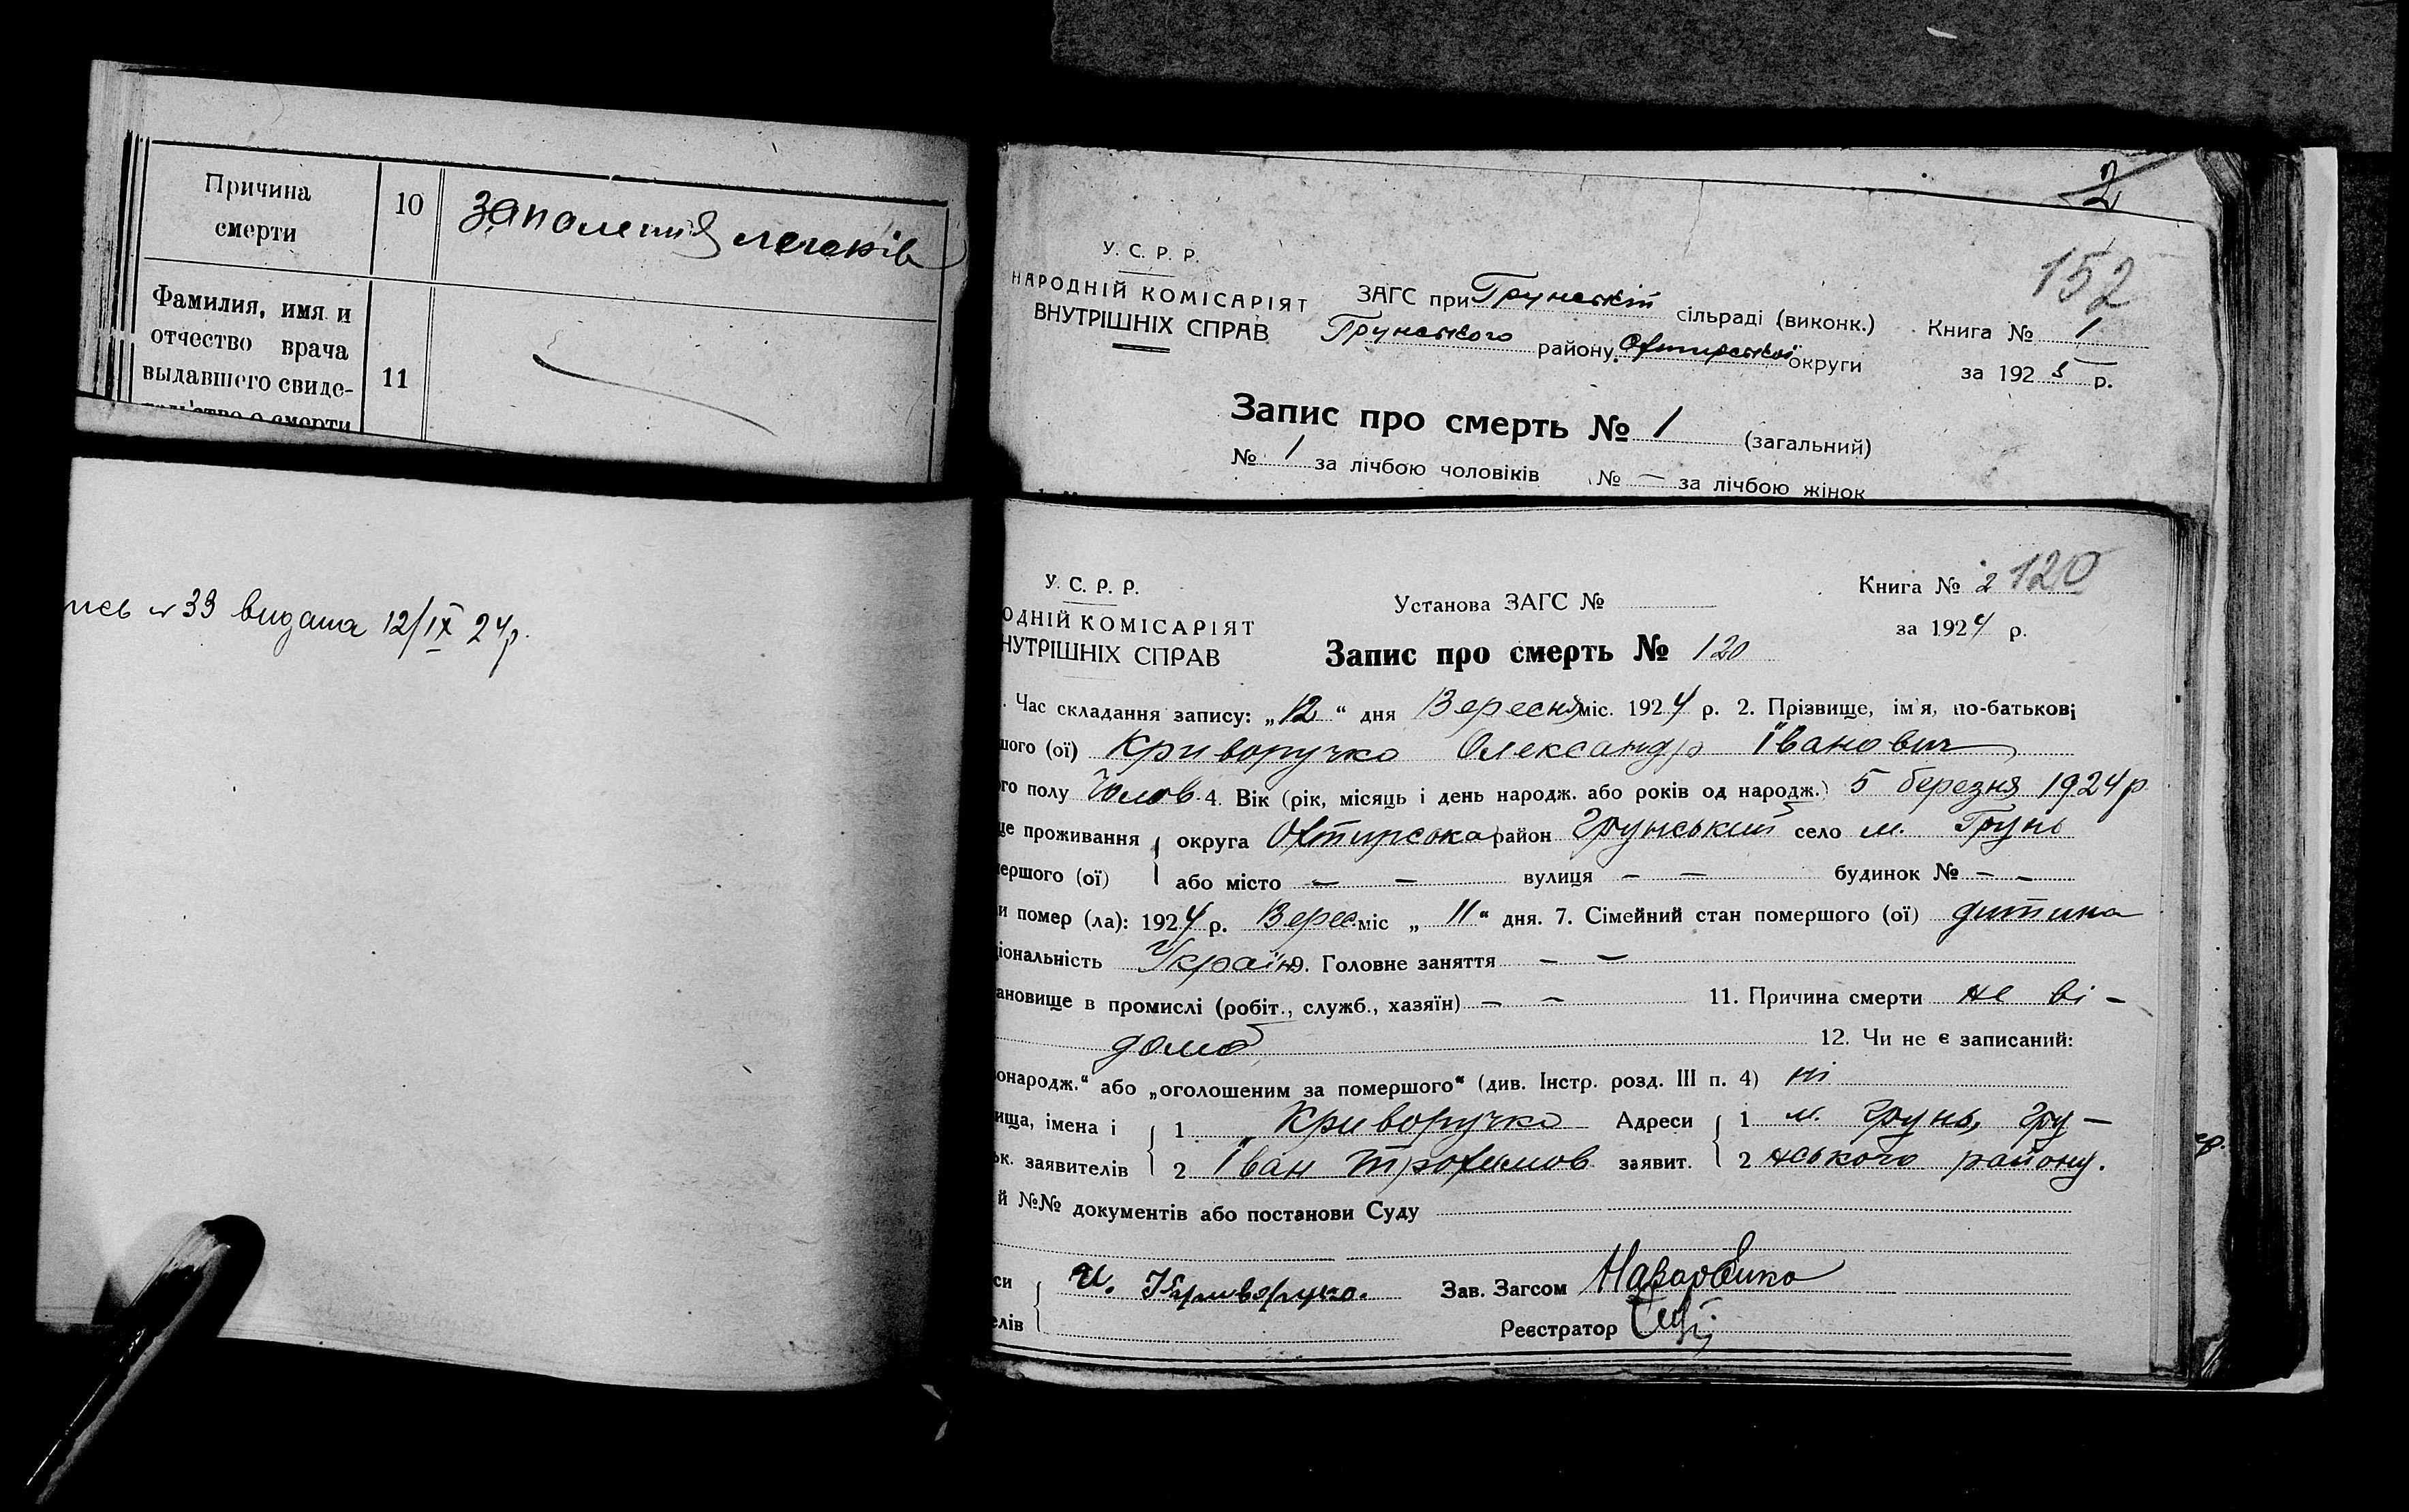 Причина
смерти
10
запаления легенів
Фамилия, имя и
отчество врача
выдавшего свиде-
тельство о смерти
11
№ 33 видана 12/IX 24р.
2
152
У. С. Р. Р.
НАРОДНІЙ КОМІСАРІЯТ
ВНУТРІШНІХ СПРАВ
ЗАГС при Грунській сільраді (виконк.)
Грунського району Охтирської округи
Книга № 1
за 1925 р.
Запис про смерть № 1 (загальний)
№ 1 за лічбою чоловіків № — за лічбою жінок
У. С. Р. Р.
ОДНІЙ КОМІСАРІЯТ
НУТРІШНІХ СПРАВ
Установа ЗАГС №
Книга № 2 120
за 1924 р.
Запис про смерть № 120
. Час складання запису: „12“ дня Вересня міс. 1924 р. 2. Прізвище, ім'я, по-батькові
шого (ої) Криворучко Олександр Іванович
го полу Чолов. 4. Вік (рік, місяць і день народж. або років од народж.) 5 березня 1924 р
це проживання округа Охтирська район Грунський село м. Грунь
мершого (ої) або місто — — вулиця — — будинок № — —
и помер (ла): 1924 р. Верес. міс „11“ дня. 7. Сімейний стан помершого (ої) дитина
ціональність Україн. 9. Головне заняття — —
ановище в промислі (робіт., служб., хазяїн) — — 11. Причина смерти не ві -
дома 12. Чи не є записаний:
онародж.“ або „оголошеним за помершого“ (див. Інстр. розд. III п. 4) ні
ища, імена і 1 Криворучко Адреси 1 м. Грунь, Гру -
ьк. заявителів 2 Іван Трохимов. заявит. 2 нського району.
й №№ документів або постанови Суду
си И. Криворучко. Зав. Загсом
елів Реєстратор